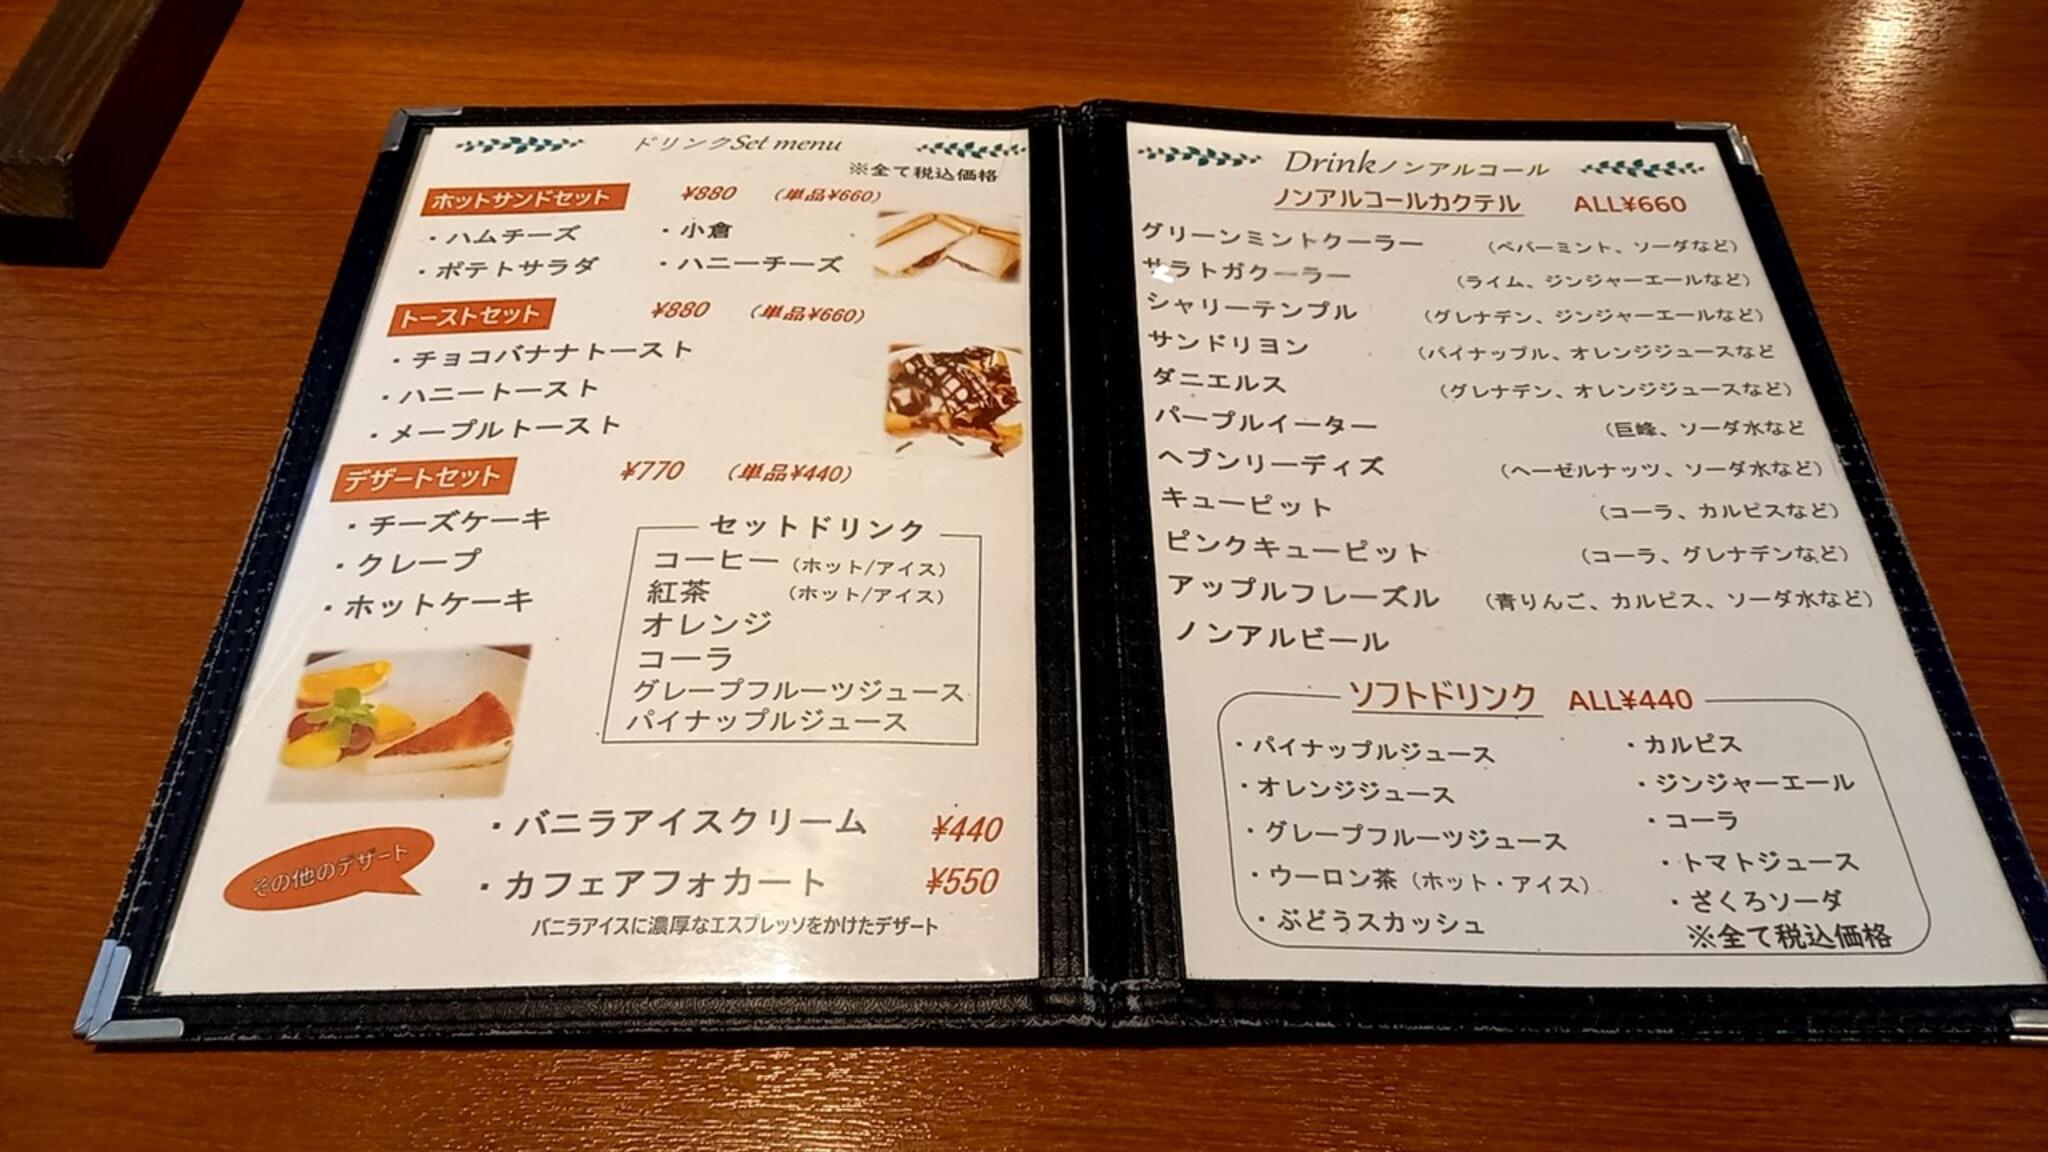 ドリンクSet menu
※全て税込価格
ホットサンドセット ¥880 (単品¥660)
・ハムチーズ ・小倉
・ポテトサラダ ・ハニーチーズ
トーストセット ¥880 (単品¥660)
・チョコバナナトースト
・ハニートースト
・メープルトースト
デザートセット ¥770 (単品¥440)
・チーズケーキ
・クレープ
・ホットケーキ
セットドリンク
コーヒー (ホット/アイス)
紅茶 (ホット/アイス)
オレンジ
コーラ
グレープフルーツジュース
パイナップルジュース
その他のデザート
・バニラアイスクリーム ¥440
・カフェアフォカート ¥550
バニラアイスに濃厚なエスプレッソをかけたデザート
Drinkノンアルコール
ノンアルコールカクテル ALL¥660
グリーンミントクーラー (ペパーミント、ソーダなど)
サラトガクーラー (ライム、ジンジャーエールなど)
シャリーテンプル (グレナデン、ジンジャーエールなど)
サンドリヨン (パイナップル、オレンジジュースなど
ダニエルス (グレナデン、オレンジジュースなど)
パープルイーター (巨峰、ソーダ水など
ヘブンリーデイズ (ヘーゼルナッツ、ソーダ水など)
キューピット (コーラ、カルピスなど)
ピンクキューピット (コーラ、グレナデンなど)
アップルフレーズル (青りんご、カルピス、ソーダ水など)
ノンアルビール
ソフトドリンク ALL¥440
・パイナップルジュース
・オレンジジュース
・グレープフルーツジュース
・ウーロン茶 (ホット・アイス)
・ぶどうスカッシュ
・カルピス
・ジンジャーエール
・コーラ
・トマトジュース
・ざくろソーダ
※全て税込価格